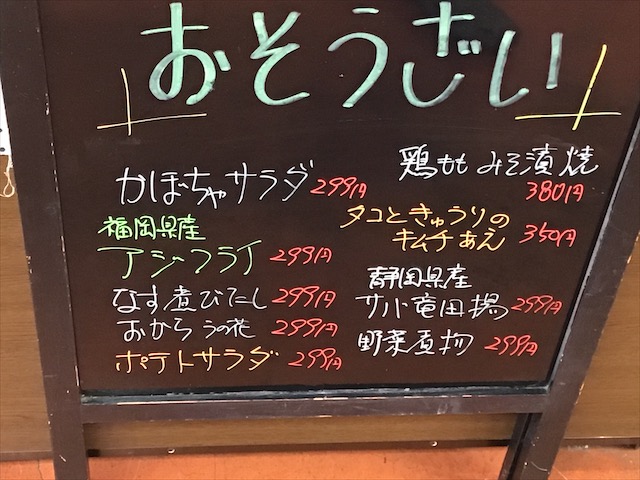 おそうざい
かぼちゃサラダ 299円
福岡県産
アジフライ 299円
なす煮びたし 299円
おから うの花 299円
ポテトサラダ 299円
鶏もも みそ漬焼
380円
タコときゅうりの
キムチあえ 350円
静岡県産
サバ竜田揚 299円
野菜煮物 299円